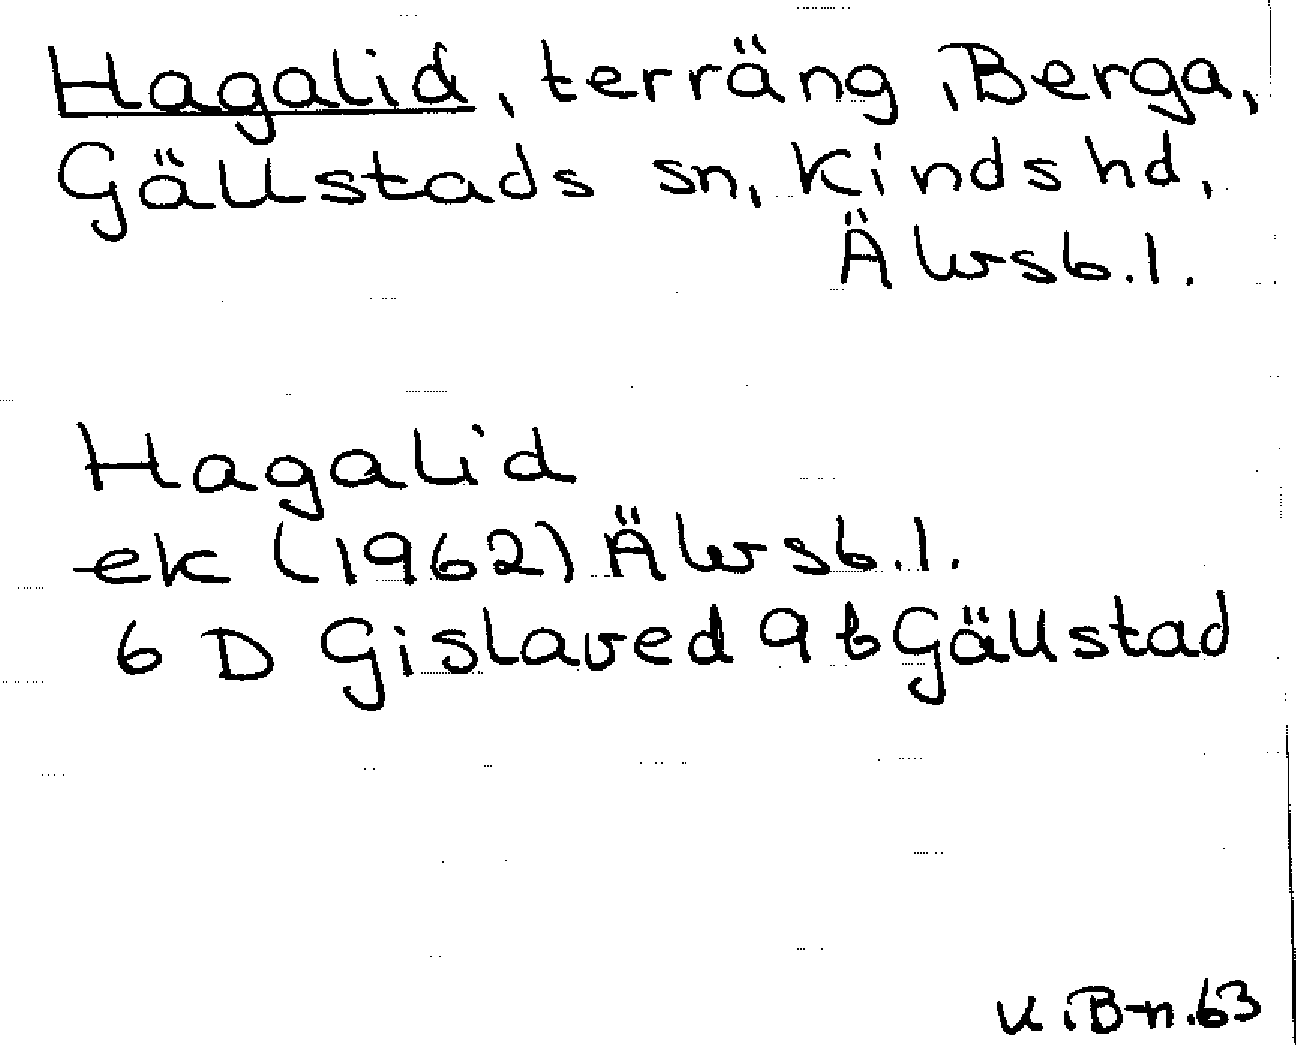 Hagalid, terräng i Berga,
Gällstads sn, Kinds hd,
Älvsb. l.
Hagalid
ek (1962) Älvsb. l.
6 D Gislaved 9 b Gällstad
K. B-n. 63